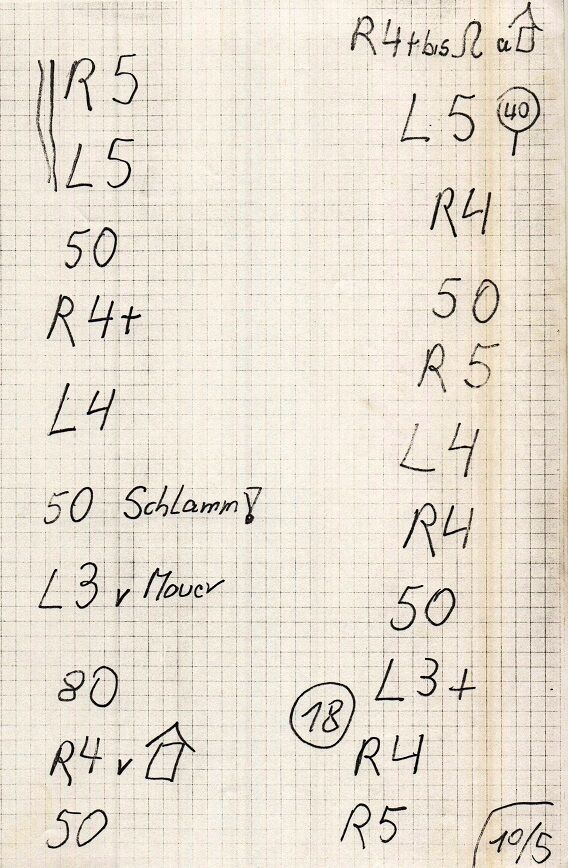 R 5
L 5
50
R 4+
L 4
50 Schlamm!
L3 v Mauer
80
R4 v
50
R4+bis Ω a
L 5 40
R4
50
R 5
L 4
R4
50
L 3+
18
R4
R5
10/5